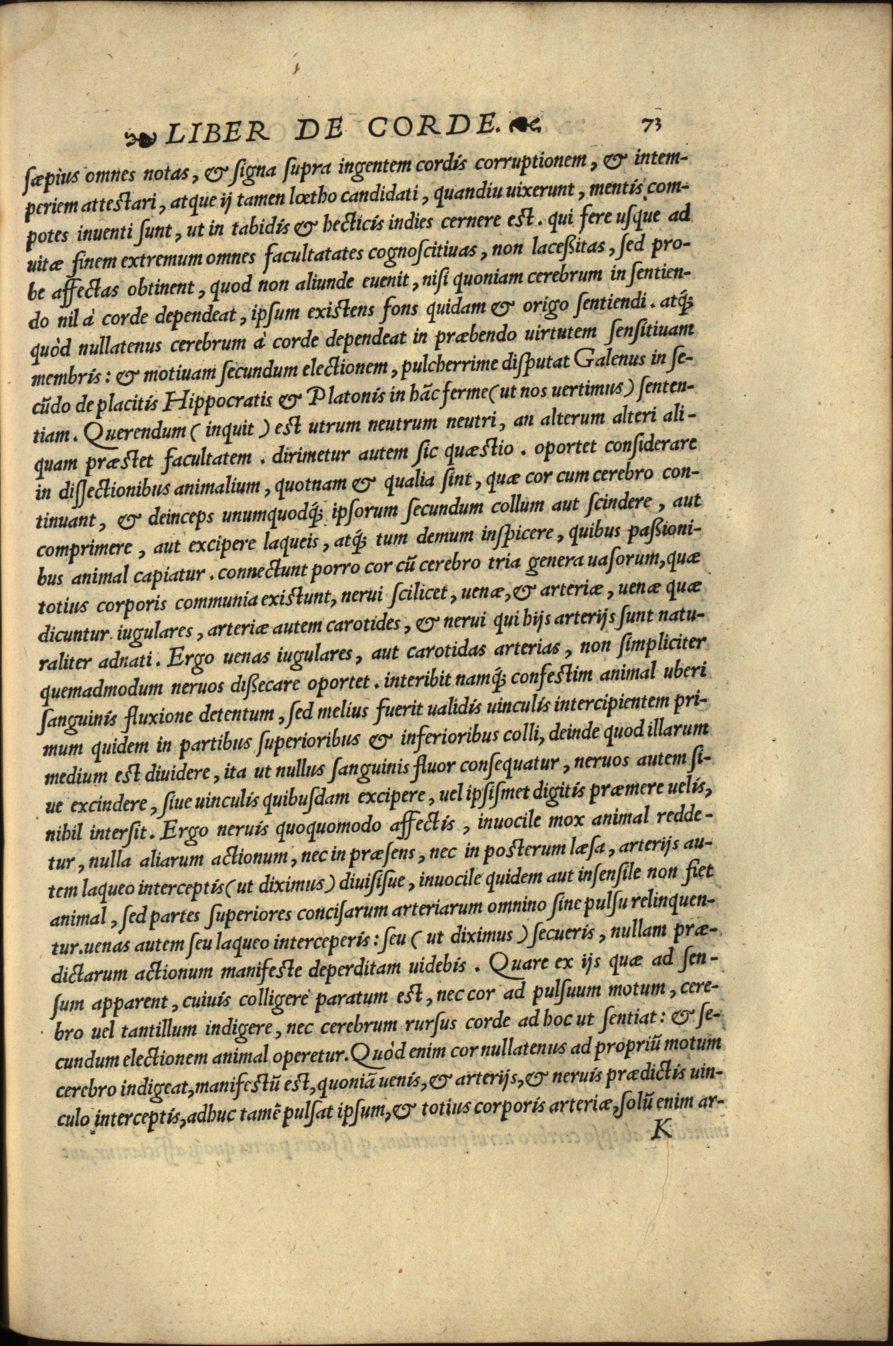 LIBER DE CORDE. 73
sæpius omnes notas, & signa supra ingentem cordis corruptionem, & intem-
periem attestari, atque ij tamen lœtho candidati, quandiu uixerunt, mentis com-
potes inuenti sunt, ut in tabidis & hecticis indies cernere est. qui fere usque ad
uitæ finem extremum omnes facultatates cognoscitiuas, non laceßitas, sed pro-
be affectas obtinent, quod non aliunde euenit, nisi quoniam cerebrum in sentien-
do nil à corde dependeat, ipsum existens fons quidam & origo sentiendi. atq́
quòd nullatenus cerebrum à corde dependeat in præbendo uirtutem sensitiuam
membris: & motiuam secundum electionem, pulcherrime disputat Galenus in se-
cũdo de placitis Hippocratis & Platonis in hãc ferme (ut nos uertimus) senten-
tiam. Querendum (inquit) est utrum neutrum neutri, an alterum alteri ali-
quam præstet facultatem. dirimetur autem sic quæstio. oportet considerare
in dissectionibus animalium, quotnam & qualia sint, quæ cor cum cerebro con-
tinuant, & deinceps unumquodq́ ipsorum secundum collum aut scindere, aut
comprimere, aut excipere laqueis, atq́ tum demum inspicere, quibus paßioni-
bus animal capiatur. connectunt porro cor cũ cerebro tria genera uasorum, quæ
totius corporis communia existunt, nerui scilicet, uenæ, & arteriæ, uenæ quæ
dicuntur iugulares, arteriæ autem carotides, & nerui qui hijs arterijs sunt natu-
raliter adnati. Ergo uenas iugulares, aut carotidas arterias, non simpliciter
quemadmodum neruos dißecare oportet. interibit namq́ confestim animal uberi
sanguinis fluxione detentum, sed melius fuerit ualidis uinculis intercipientem pri-
mum quidem in partibus superioribus & inferioribus colli, deinde quod illarum
medium est diuidere, ita ut nullus sanguinis fluor consequatur, neruos autem si-
ue excindere, siue uinculis quibusdam excipere, uel ipsismet digitis præmere uelis,
nihil intersit. Ergo neruis quoquomodo affectis, inuocile mox animal redde-
tur, nulla aliarum actionum, nec in præsens, nec in posterum læsa, arterijs au-
tem laqueo interceptis (ut diximus) diuisisue, inuocile quidem aut insensile non fiet
animal, sed partes superiores concisarum arteriarum omnino sine pulsu relinquen-
tur. uenas autem seu laqueo interceperis: seu (ut diximus) secueris, nullam præ-
dictarum actionum manifeste deperditam uidebis. Quare ex ijs quæ ad sen-
sum apparent, cuiuis colligere paratum est, nec cor ad pulsuum motum, cere-
bro uel tantillum indigere, nec cerebrum rursus corde ad hoc ut sentiat: & se-
cundum electionem animal operetur. Quòd enim cor nullatenus ad propriũ motum
cerebro indigeat, manifestũ est, quoniã uenis, & arterijs, & neruis prædictis uin-
culo interceptis, adhuc tamẽ pulsat ipsum, & totius corporis arteriæ, solũ enim ar-
K